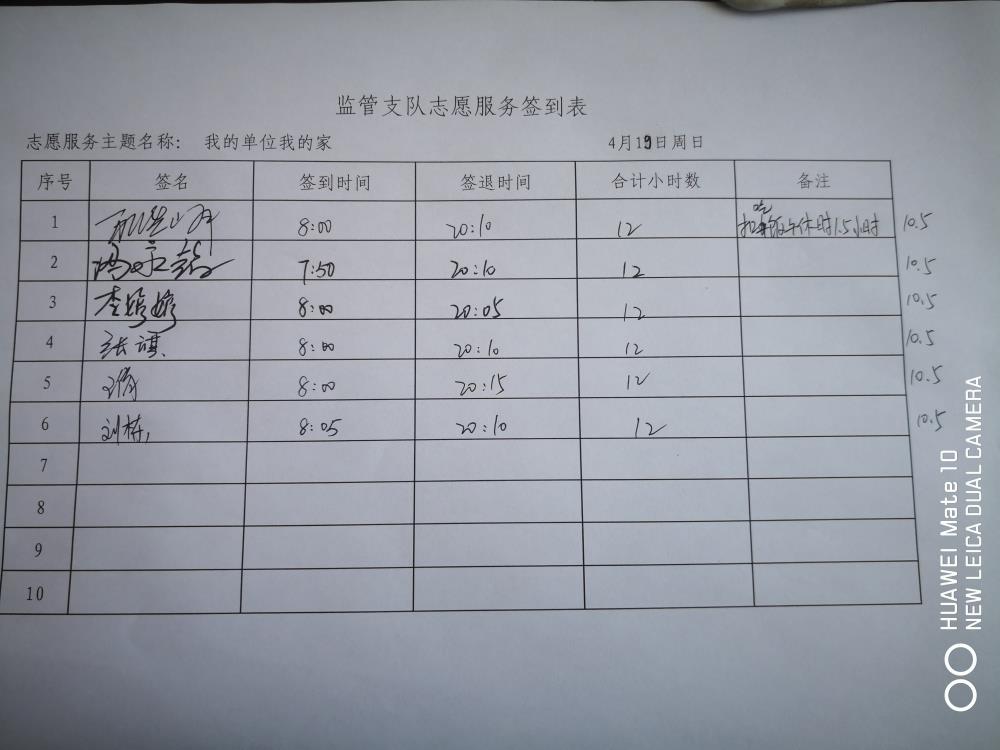 监管支队志愿服务签到表
志愿服务主题名称: 我的单位我的家 4月19日周日
序号 签名 签到时间 签退时间 合计小时数 备注
1 8:00 20:10 12 扣吃饭午休时1.5小时 10.5
2 7:50 20:10 12 10.5
3 李婷婷 8:00 20:05 12 10.5
4 张琪 8:00 20:10 12 10.5
5 8:00 20:15 12 10.5
6 刘栋 8:05 20:10 12 10.5
7
8
9
10
HUAWEI Mate 10
NEW LEICA DUAL CAMERA